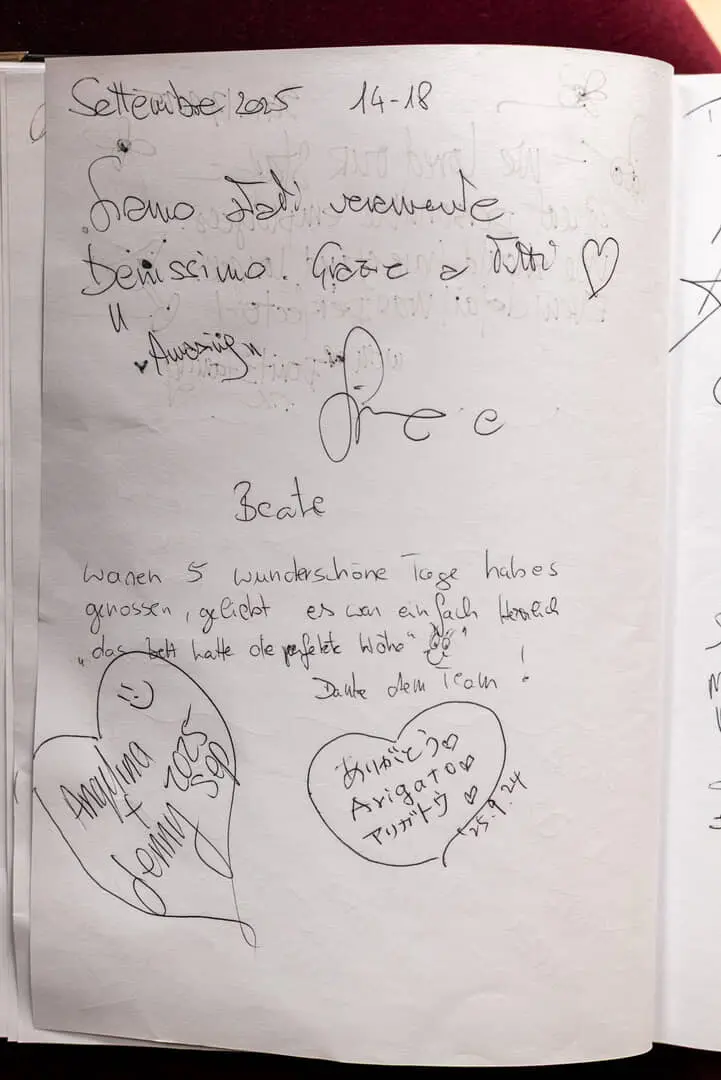 Settembre 2025 14-18
Siamo stati veramente
benissimo. Grazie a tutti ♡
"Amazing"
Beate
waren 5 wunderschöne Tage habe s
genossen, geliebt es war einfach Herrlich
„das bett hatte die perfekte Höhe“
Danke dem Team !
Angelina
+
Jenny 2025
Sep
ありがとう♡
Arigato♡
アリガトウ♡
'25.9.24